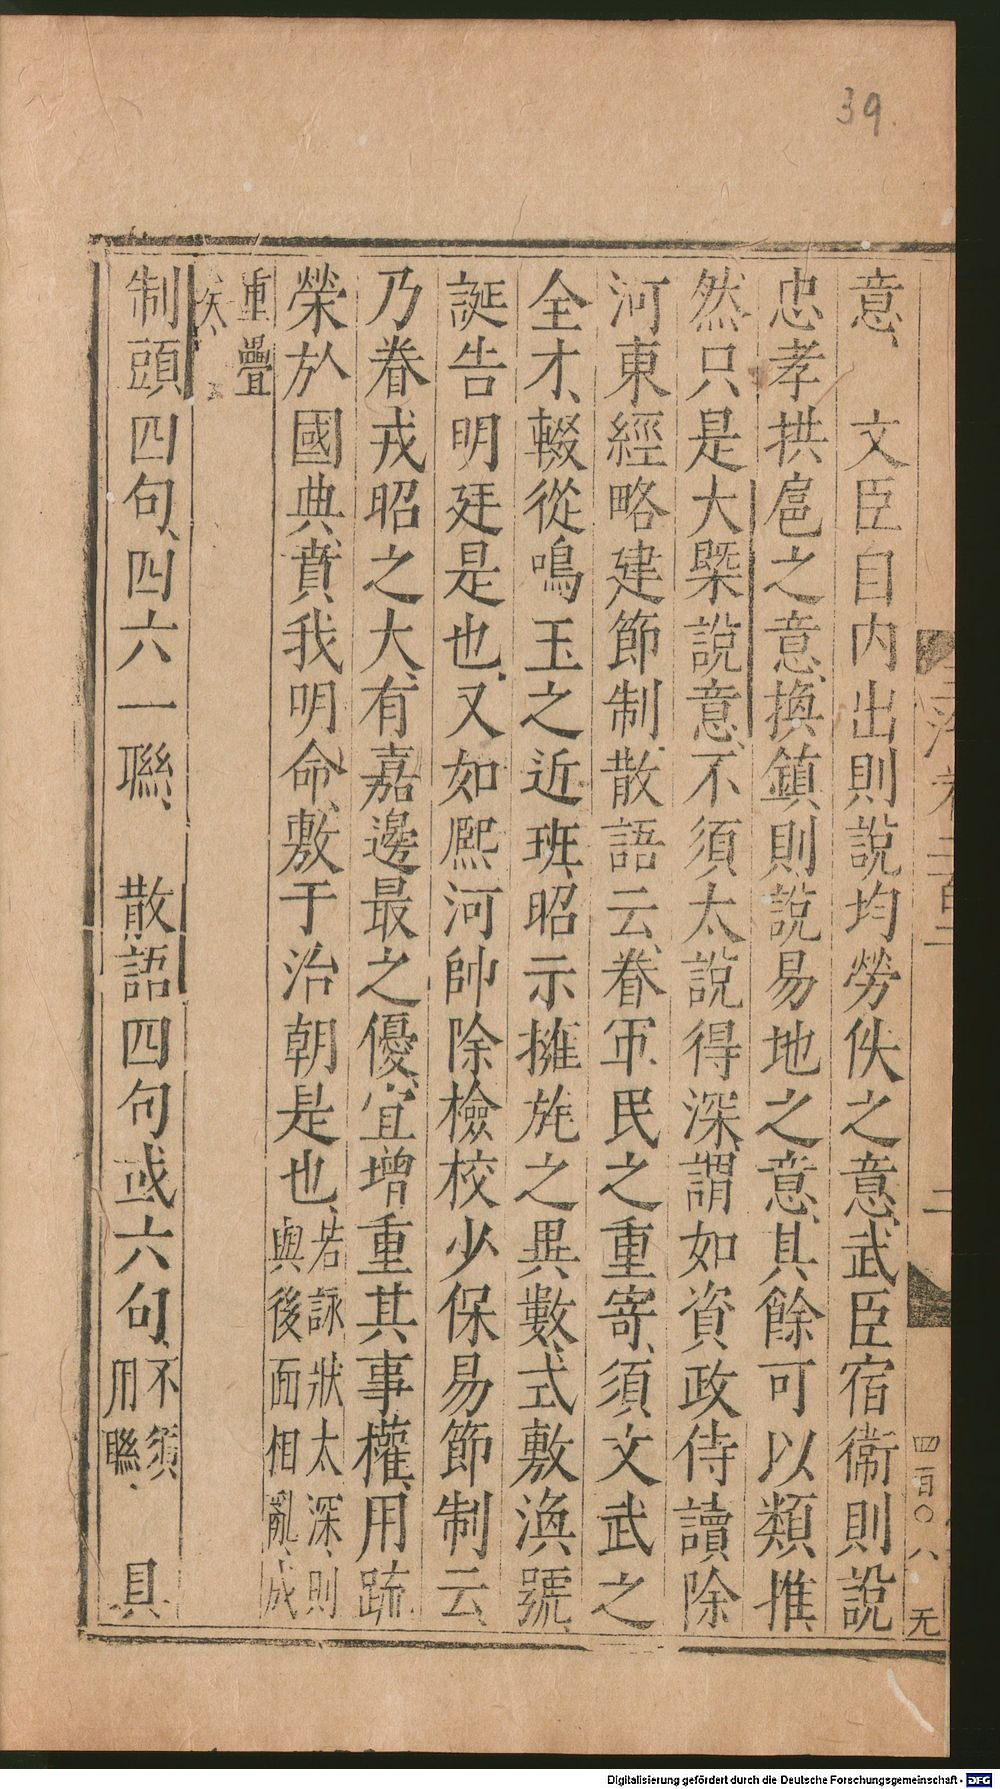 39
意、文臣自内出則說均勞佚之意、武臣宿衞則說
忠孝拱扈之意、換鎮則說易地之意、其餘可以類推、
然只是大槩說意、不須太說得深、謂如資政侍讀除
河東經略建節制、散語云、眷軍民之重寄、須文武之
全才、輟從鳴玉之近班、昭示擁旄之異數、式敷渙號、
誕告明廷是也、又如熙河帥除檢校少保易節制云、
乃眷戎昭之大、有嘉邊最之優、宜增重其事權、用疏
榮於國典、賁我明命、敷于治朝是也、
若詠狀太深、則
與後面相亂、成
重疊
矣、
制頭四句、四六一聯、散語四句或六句、
不須
用聯、
具
二
四百〇八
无
Digitalisierung gefördert durch die Deutsche Forschungsgemeinschaft - DFG